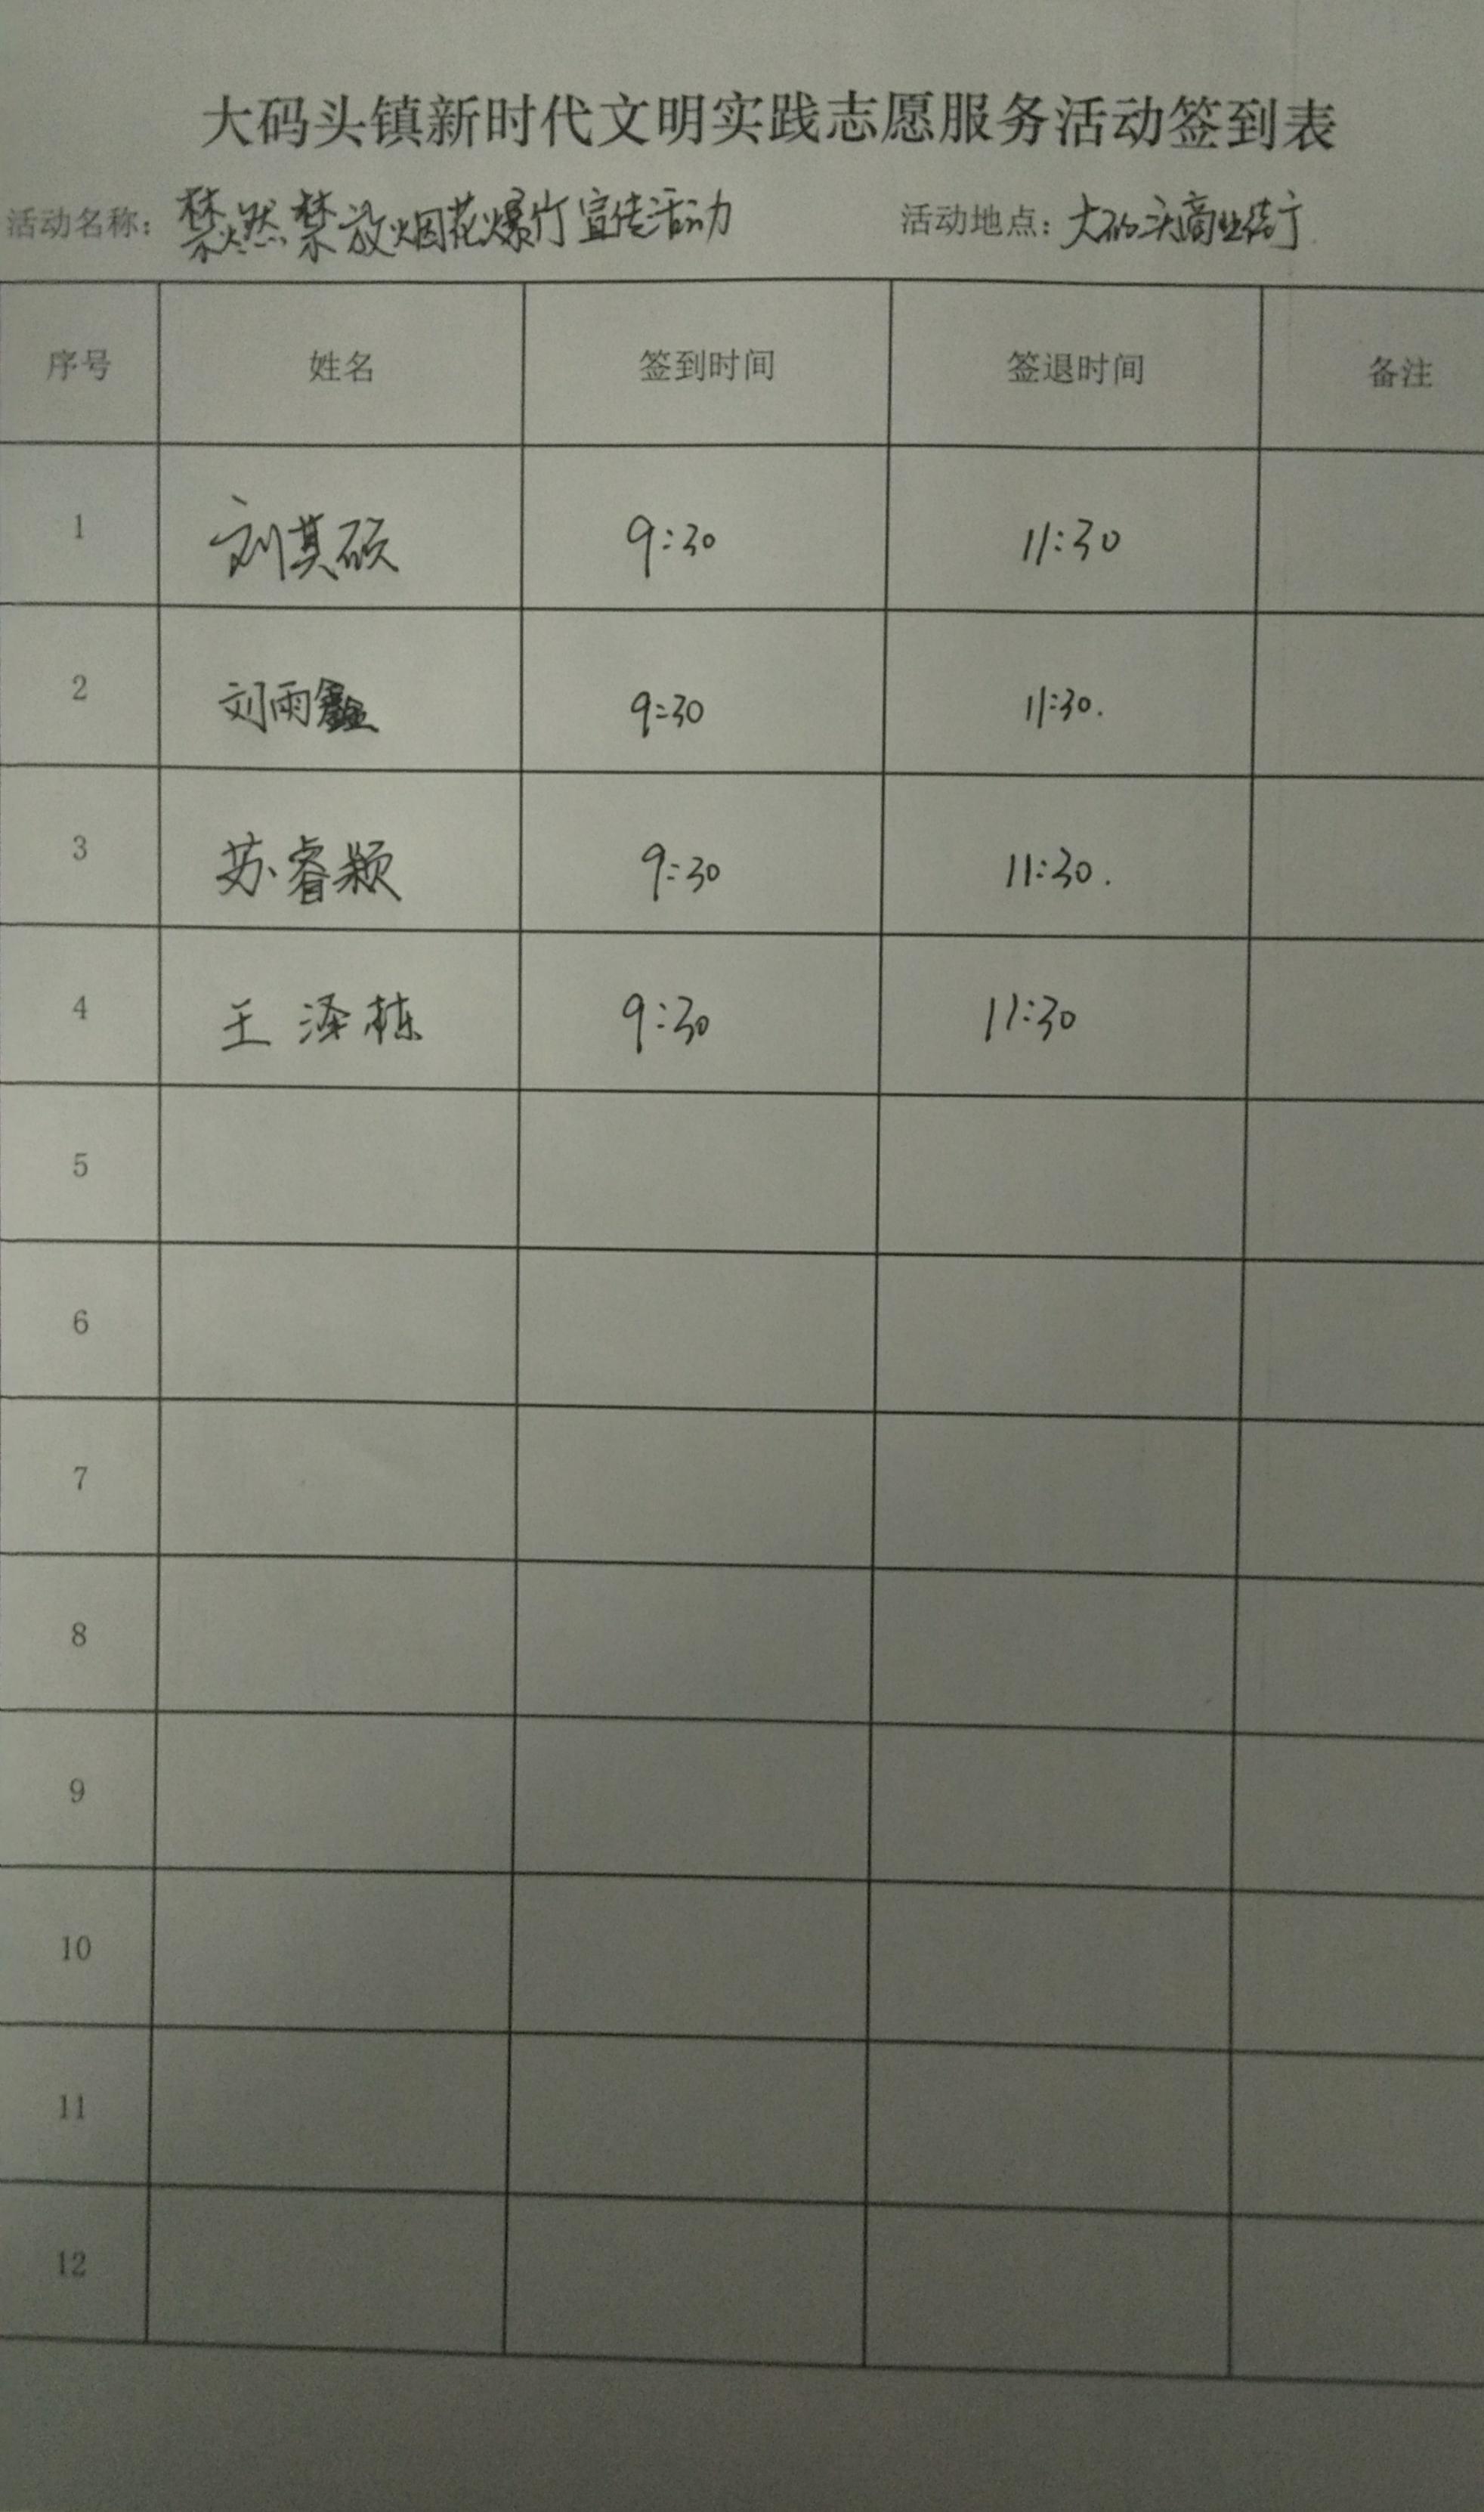 大码头镇新时代文明实践志愿服务活动签到表
活动名称: 禁燃禁放烟花爆竹宣传活动 活动地点: 大码头商业街
序号 姓名 签到时间 签退时间 备注
1 刘其硕 9:30 11:30
2 刘雨鑫 9:30 11:30.
3 苏睿颖 9:30 11:30.
4 王泽栋 9:30 11:30
5
6
7
8
9
10
11
12